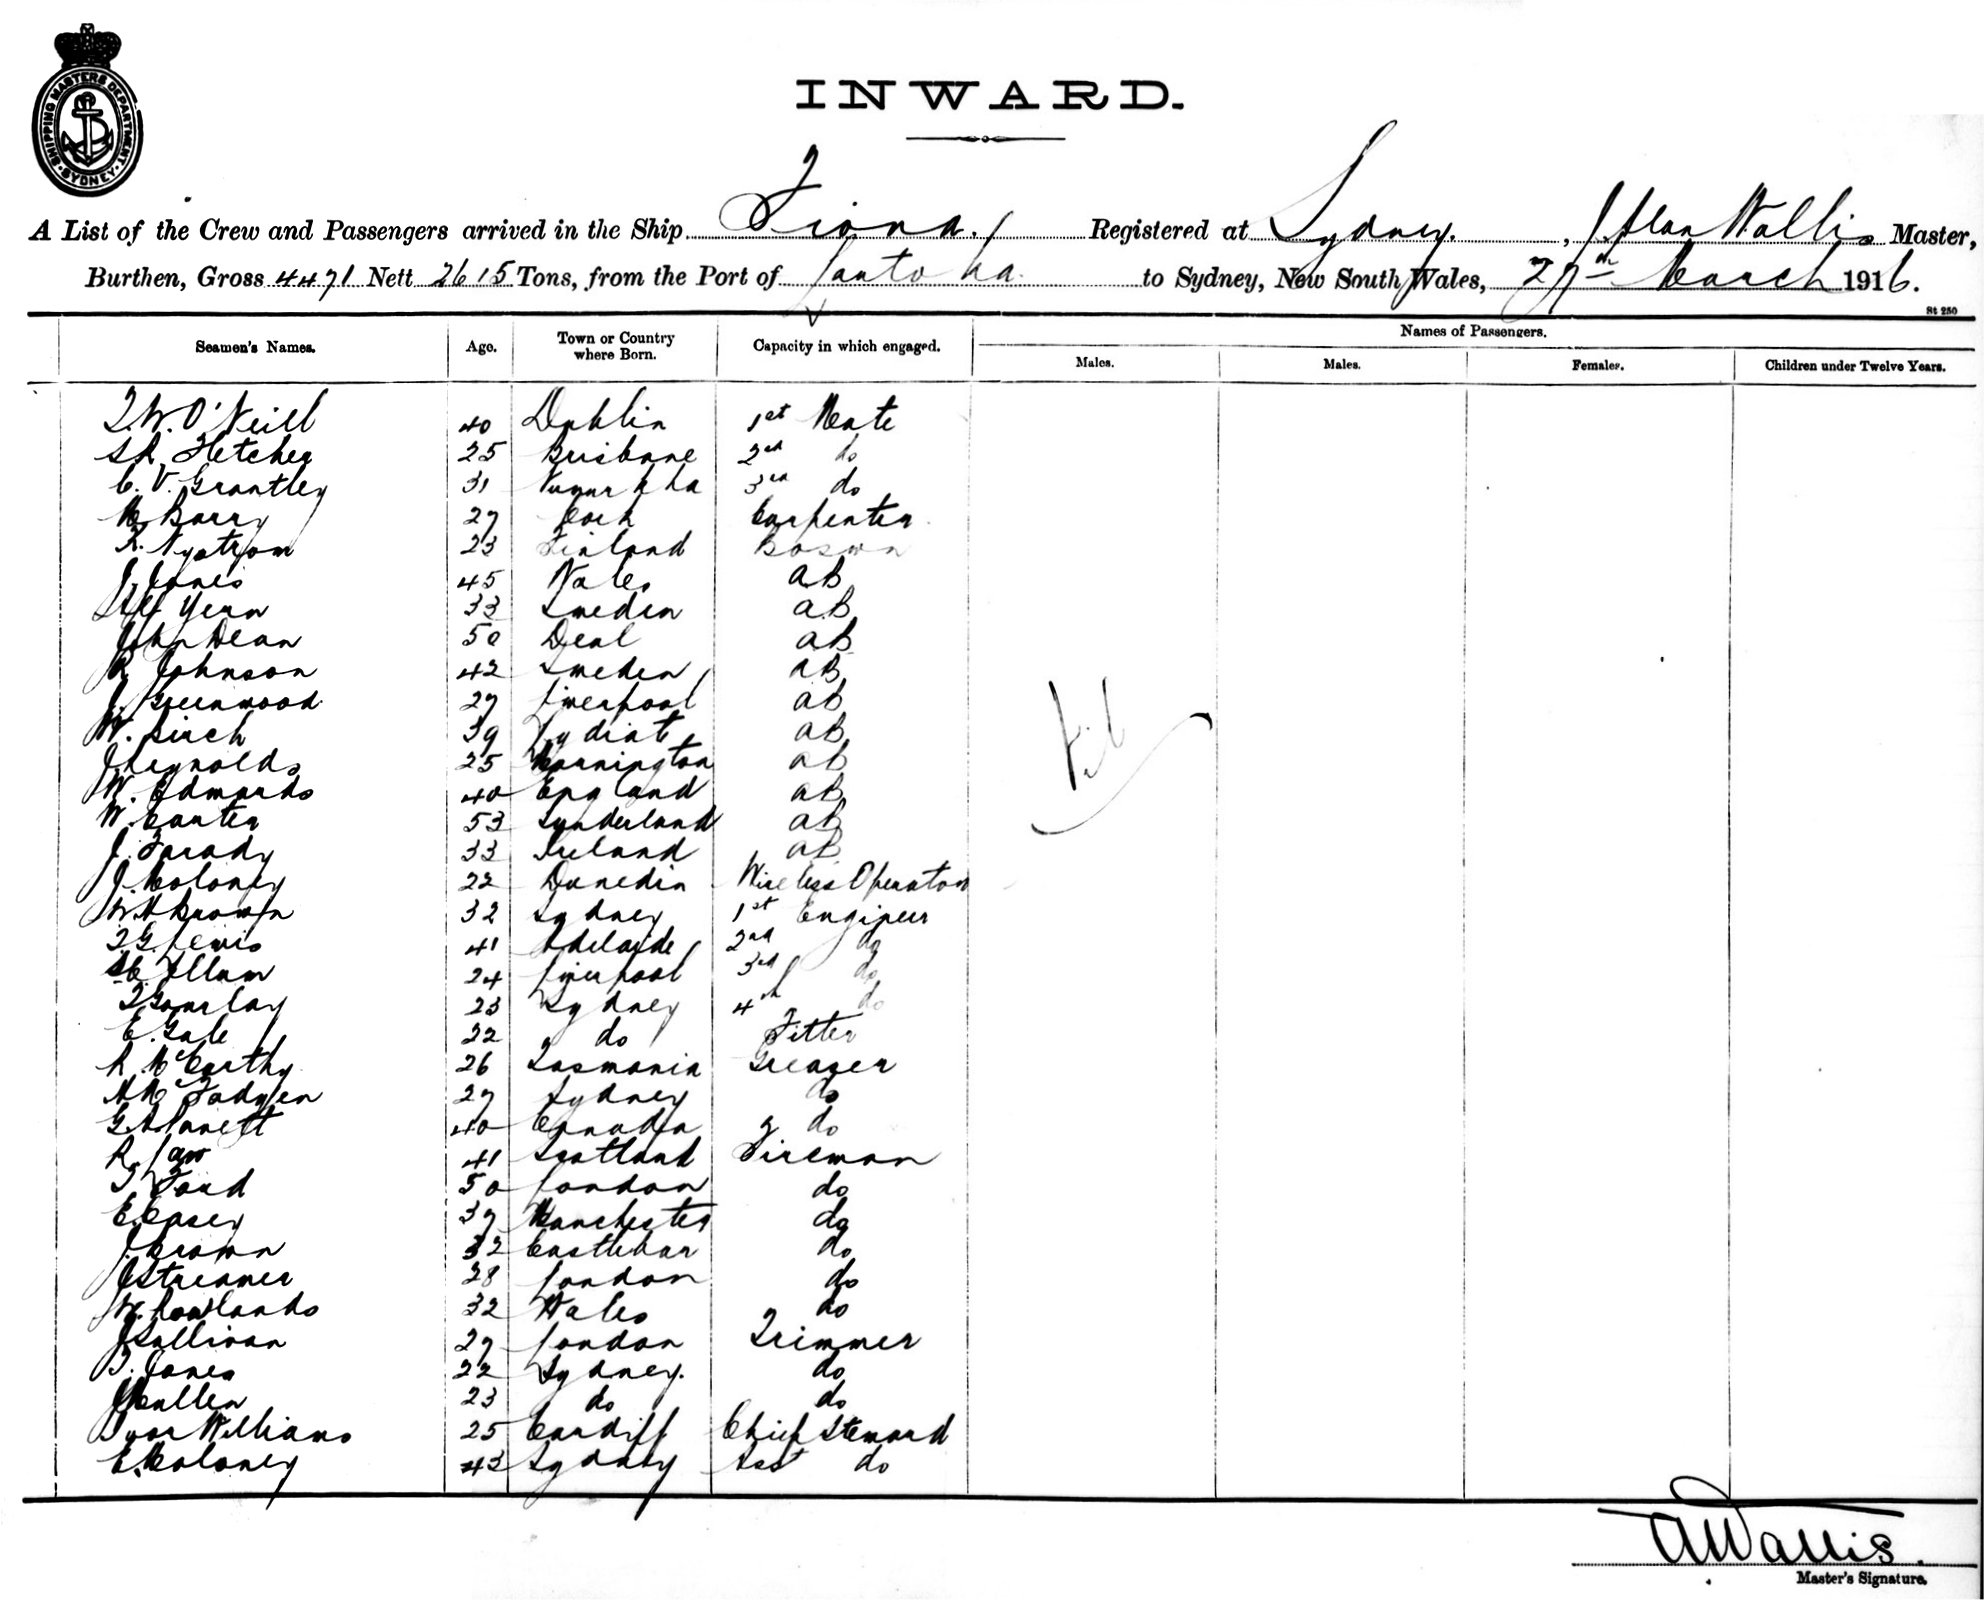 SHIPPING MASTERS DEPARTMENT · SYDNEY ·
INWARD.
A List of the Crew and Passengers arrived in the Ship Fiona. Registered at Sydney. , Alan Wallis Master,
Burthen, Gross 4471 Nett 2615 Tons, from the Port of Lautoka to Sydney, New South Wales, 27th March 1916.
St 250
Seamen's Names. Age. Town or Country where Born. Capacity in which engaged. Names of Passengers.
Males. Males. Females. Children under Twelve Years.
T. W. O'Neill 40 Dublin 1st Mate
S R Fletcher 25 Brisbane 2nd do
C. V. Grantley 31 3rd do
M Barry 27 Cork Carpenter
K. Nystrom 23 Finland Bosun
J. Jones 45 Wales AB
Yern 33 Sweden AB
John Dean 50 Deal AB
R Johnson 42 Sweden AB
J. Greenwood 27 Liverpool AB
W. Birch 39 Lydiate AB
J Reynolds 25 Mornington AB
W. Edwards 40 England AB
W. Carter 53 Sunderland AB
J. Farady 33 Ireland AB
J. Moloney 22 Dunedin Wireless Operator
W. A Brown 32 Sydney 1st Engineer
T. G. Lewis 41 Adelaide 2nd do
Allum 24 Liverpool 3rd do
T Gourlay 23 Sydney 4th do
E. Gale 22 do Fitter
R McCarthy 26 Tasmania Greaser
A McFadyen 27 Sydney do
G A 40 Canada do
R. Law 41 Scotland Fireman
T Ford 50 London do
E Casey 37 Manchester do
J. Brown 32 Castlebar do
J Streamer 28 London do
W. Rowlands 32 Wales do
J Sullivan 27 London Trimmer
T. Jones 22 Sydney. do
J Mullen 23 do do
Ivor Williams 25 Cardiff Chief Steward
E. Moloney 43 Sydney Asst do
Nil
A Wallis.
Master's Signature.